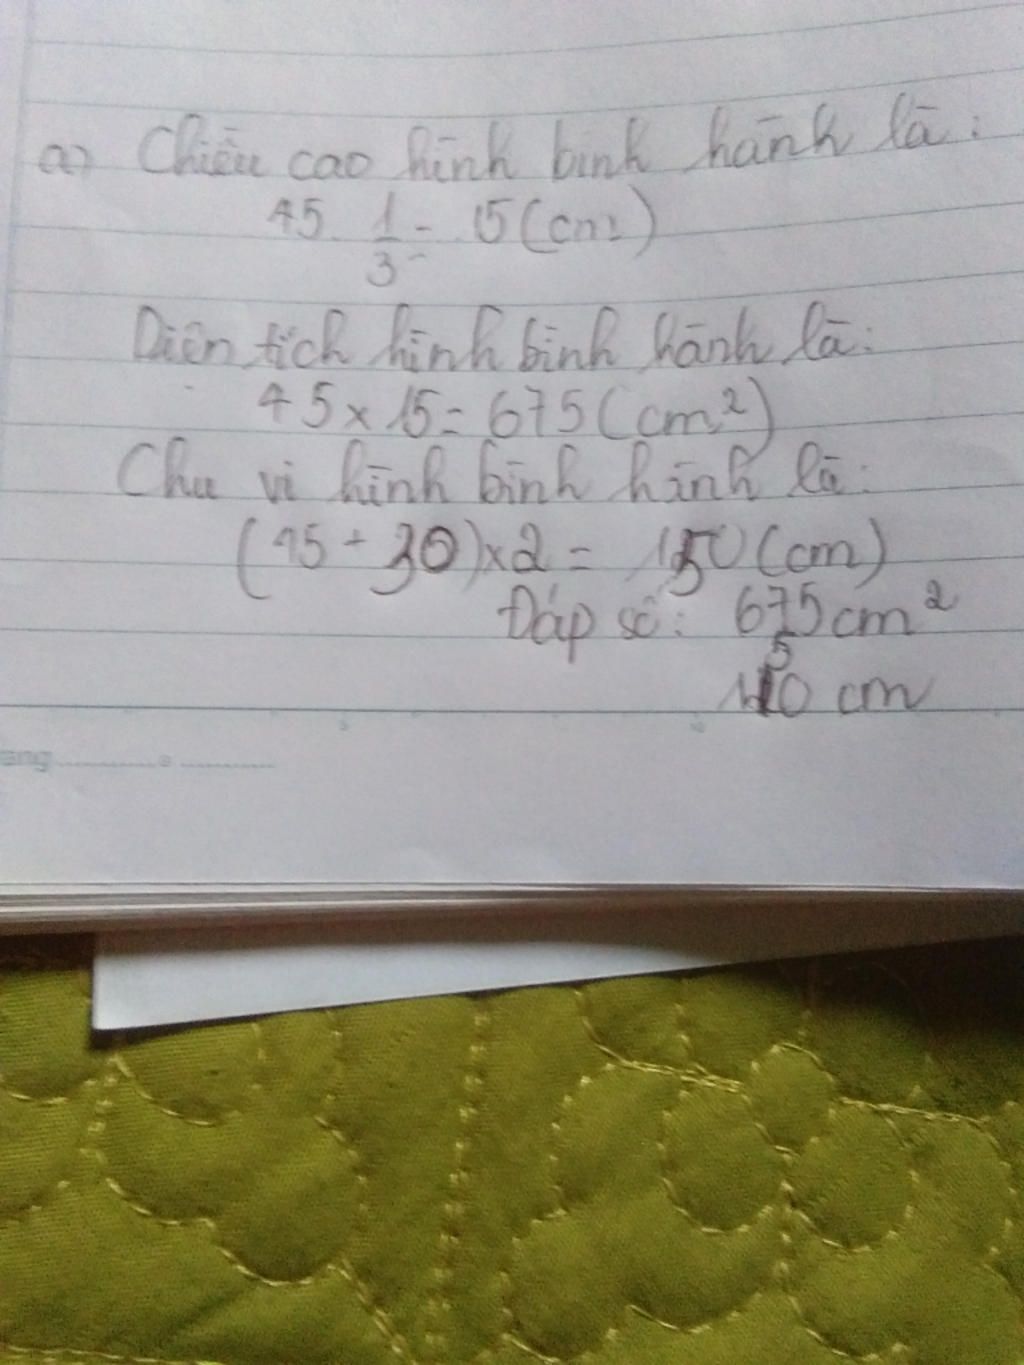 a) Chiều cao hình bình hành là:
45 1/3 = 15 (cm)
Diện tích hình bình hành là:
45 x 15 = 675 (cm²)
Chu vi hình bình hành là:
(45 + 30) x 2 = 150 (cm)
Đáp số: 675 cm²
150 cm
ang